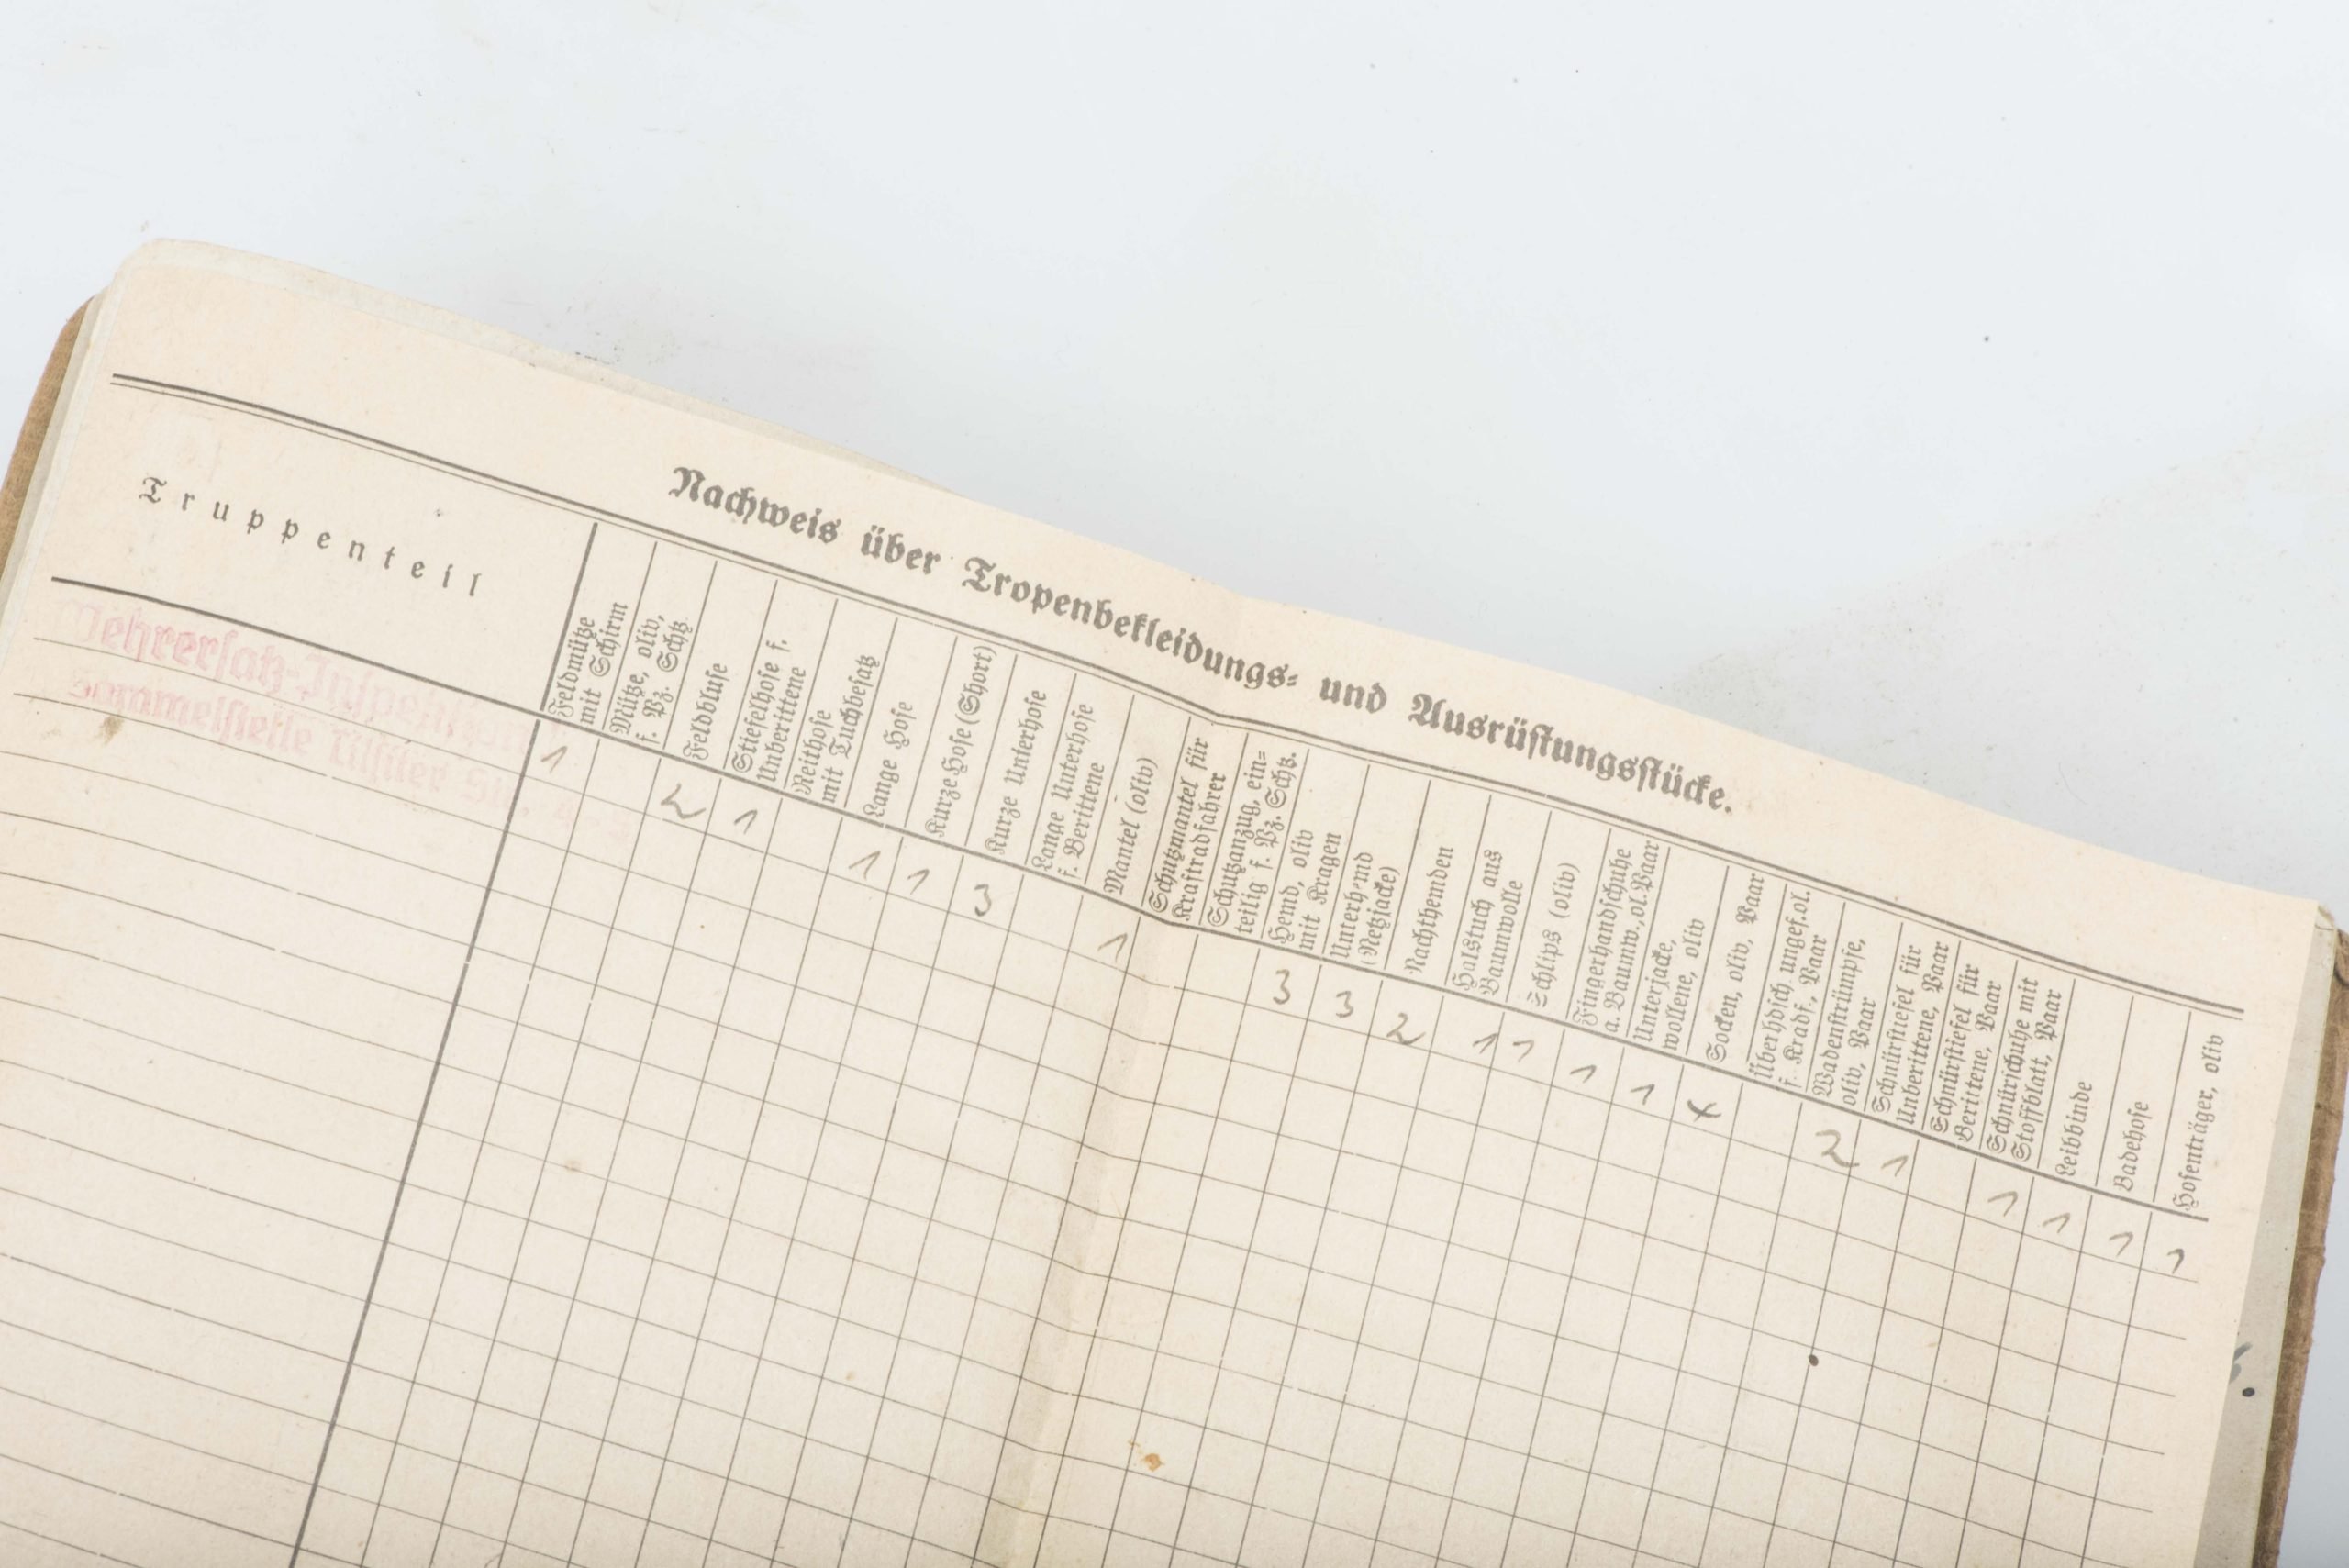 Nachweis über Tropenbekleidungs- und Ausrüstungsstücke.
Truppenteil
Feldmütze
mit Schirm
Mütze, oliv,
f. Pz. Schtz.
Feldbluse
Stiefelhose f.
Unberittene
Reithose
mit Tuchbesatz
Lange Hose
Kurze Hose (Short)
Kurze Unterhose
Lange Unterhose
f. Berittene
Mantel (oliv)
Schutzmantel für
Kraftradfahrer
Schutzanzug, ein-
teilig f. Pz. Schtz.
Hemd, oliv
mit Kragen
Unterhemd
(Netzjacke)
Nachthemden
Halstuch aus
Baumwolle
Schlips (oliv)
Fingerhandschuhe
a. Baumw., ol. Paar
Unterjacke,
wollene, oliv
Socken, oliv, Paar
Überhdsch ungef. ol.
f. Kradf., Paar
Wadenstrümpfe,
oliv, Paar
Schnürstiefel für
Unberittene, Paar
Schnürstiefel für
Berittene, Paar
Schnürschuhe mit
Stoffblatt, Paar
Leibbinde
Badehose
Hosenträger, oliv
Wehrersatz-Inspektion
Sammelstelle Tilsiter
1 2 1 1 1 3 1 3 3 2 1 1 1 1 4 2 1 1 1 1 1